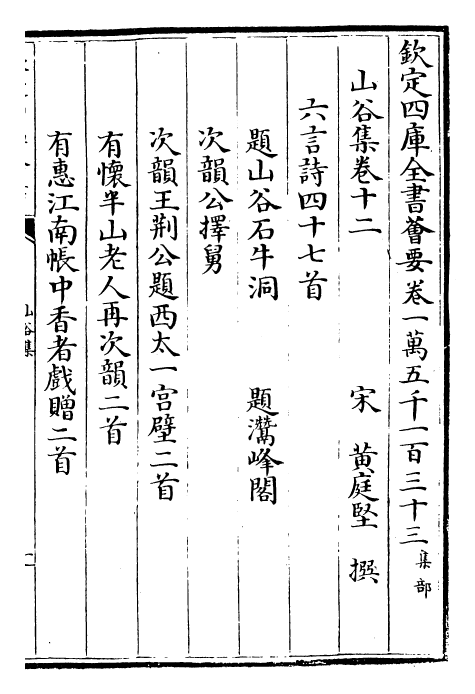 欽定四庫全書薈要卷一萬五千一百三十三 集部
山谷集卷十二 宋 黃庭堅 撰
六言詩四十七首
題山谷石牛洞 題灊峰閣
次韻公擇舅
次韻王荆公題西太一宮壁二首
有懷半山老人再次韻二首
有惠江南帳中香者戲贈二首
山谷集